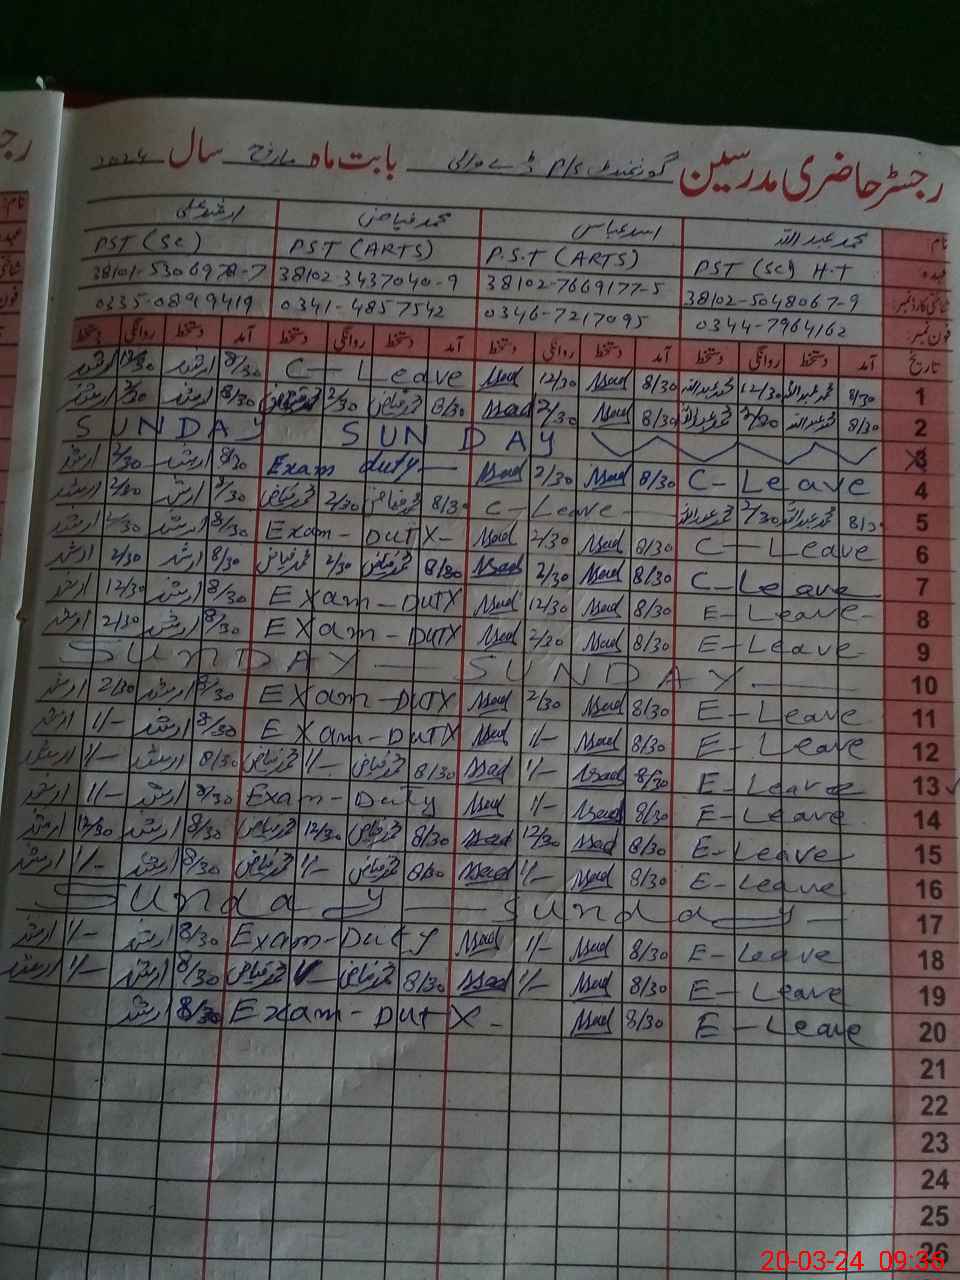 رجسٹر حاضری مدرسین گورنمنٹ P/S بابت ماہ مارچ سال 2024
نام محمد عبداللہ اسد عباس محمد فیاض ارشد علی
عہدہ PST (SC) H.T P.S.T (ARTS) PST (ARTS) PST (SC)
شناختی کارڈ نمبر 38102-5048067-9 38102-7669177-5 38102-3437040-9 38101-5306978-7
فون نمبر 0344-7964162 0346-7217095 0341-4857542 0335-08919419
تاریخ آمد دستخط روانگی دستخط آمد دستخط روانگی دستخط آمد دستخط روانگی دستخط آمد دستخط روانگی دستخط
1 8/30 محمد عبداللہ 12/30 محمد عبداللہ 8/30 Asad 12/30 Asad C-Leave 8/30 ارشد 12/30 ارشد
2 8/30 محمد عبداللہ 2/30 محمد عبداللہ 8/30 Asad 2/30 Asad 8/30 محمد فیاض 2/30 محمد فیاض 8/30 ارشد 2/30 ارشد
3 SUNDAY SUNDAY
4 C-Leave 8/30 Asad 2/30 Asad Exam duty 8/30 ارشد 2/30 ارشد
5 8/30 محمد عبداللہ 2/30 محمد عبداللہ C-Leave 8/30 محمد فیاض 2/30 محمد فیاض 8/30 ارشد 2/30 ارشد
6 C-Leave 8/30 Asad 2/30 Asad Exam-DUTY 8/30 ارشد 2/30 ارشد
7 C-Leave 8/30 Asad 2/30 Asad 8/30 محمد فیاض 2/30 محمد فیاض 8/30 ارشد 2/30 ارشد
8 E-Leave 8/30 Asad 12/30 Asad Exam-DUTY 8/30 ارشد 12/30 ارشد
9 E-Leave 8/30 Asad 2/30 Asad EXam-DUTY 8/30 ارشد 2/30 ارشد
10 SUNDAY SUNDAY
11 E-Leave 8/30 Asad 2/30 Asad EXam-DUTY 8/30 ارشد 2/30 ارشد
12 E-Leave 8/30 Asad 1/- Asad EXam-DUTY 8/30 ارشد 1/- ارشد
13 E-Leave 8/30 Asad 1/- Asad 8/30 محمد فیاض 1/- محمد فیاض 8/30 ارشد 1/- ارشد
14 E-Leave 8/30 Asad 1/- Asad Exam-Duty 8/30 ارشد 1/- ارشد
15 E-Leave 8/30 Asad 12/30 Asad 8/30 محمد فیاض 12/30 محمد فیاض 8/30 ارشد 12/30 ارشد
16 E-Leave 8/30 Asad 1/- Asad 8/30 محمد فیاض 1/- محمد فیاض 8/30 ارشد 1/- ارشد
17 Sunday Sunday
18 E-Leave 8/30 Asad 1/- Asad Exam-Duty 8/30 ارشد 1/- ارشد
19 E-Leave 8/30 Asad 1/- Asad 8/30 محمد فیاض 1/- محمد فیاض 8/30 ارشد 1/- ارشد
20 E-Leave 8/30 Asad Exam-DUTY 8/30 ارشد
21
22
23
24
25
26
20-03-24 09:36